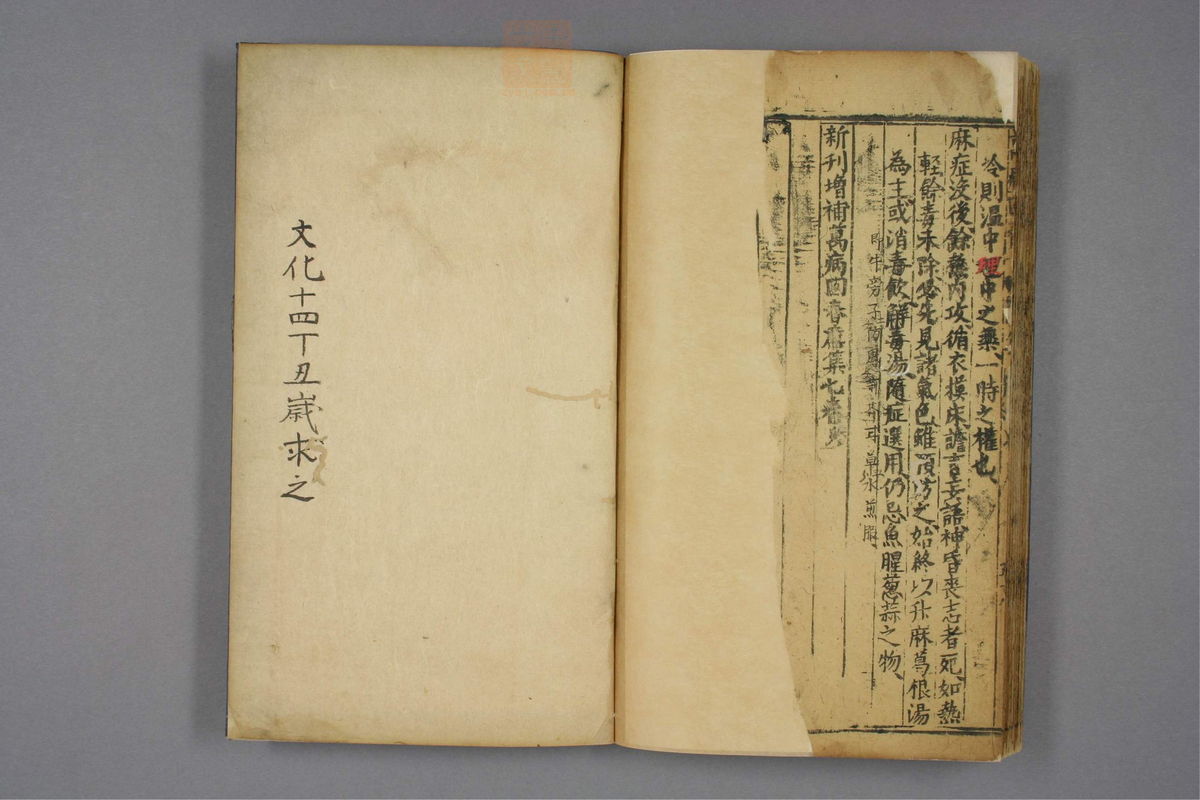 冷則温中理中之藥一時之權也
麻症没後餘毒内攻循衣摸床譫言妄語神昏喪志者死如熱
輕餘毒未除必先見諸氣色雖須防之始終以升麻葛根湯
為主或消毒飲解毒湯隨症選用仍忌魚腥葱蒜之物
防風 草水煎服
新刊增補萬病回春 集七
文化十四丁丑歳求之